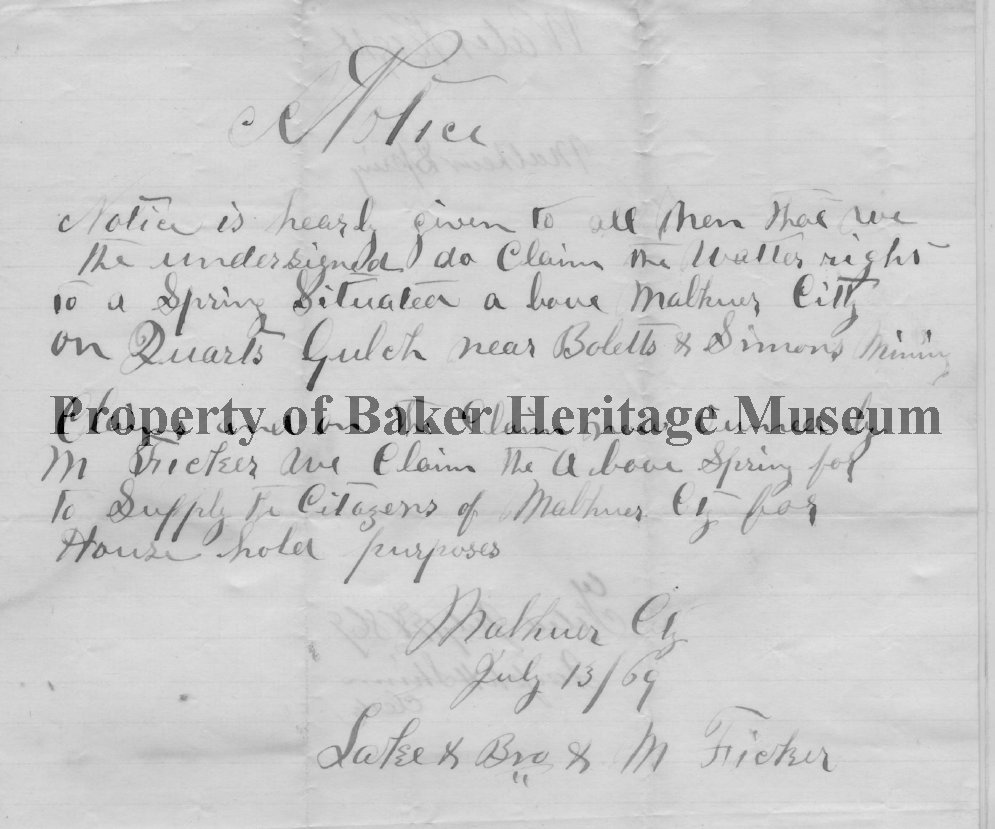 Notice
Notice is hearby given to all Men that we
the undersigned do Claim the Watter right
to a Spring Situated a bove Malhuer Citty
on Quarts Gulch near Boletts & Simons Mining
Property of Baker Heritage Museum
Claims and on the Claim by
M Ficker we Claim the a bove Spring for
to Supply the Citazens of Malhuer Cty for
House hold purposes
Malhuer Cty
July 13/69
Lake & Bro & M Ficker